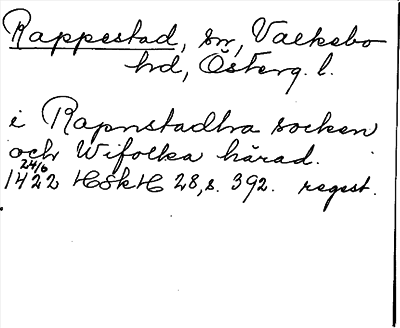 Rappestad, sn, Valkebo
hd, Österg. l.
i Rapnstadhra socken
och Wifolka härad.
24/6
1422 HSkH 28, s. 392. regest.